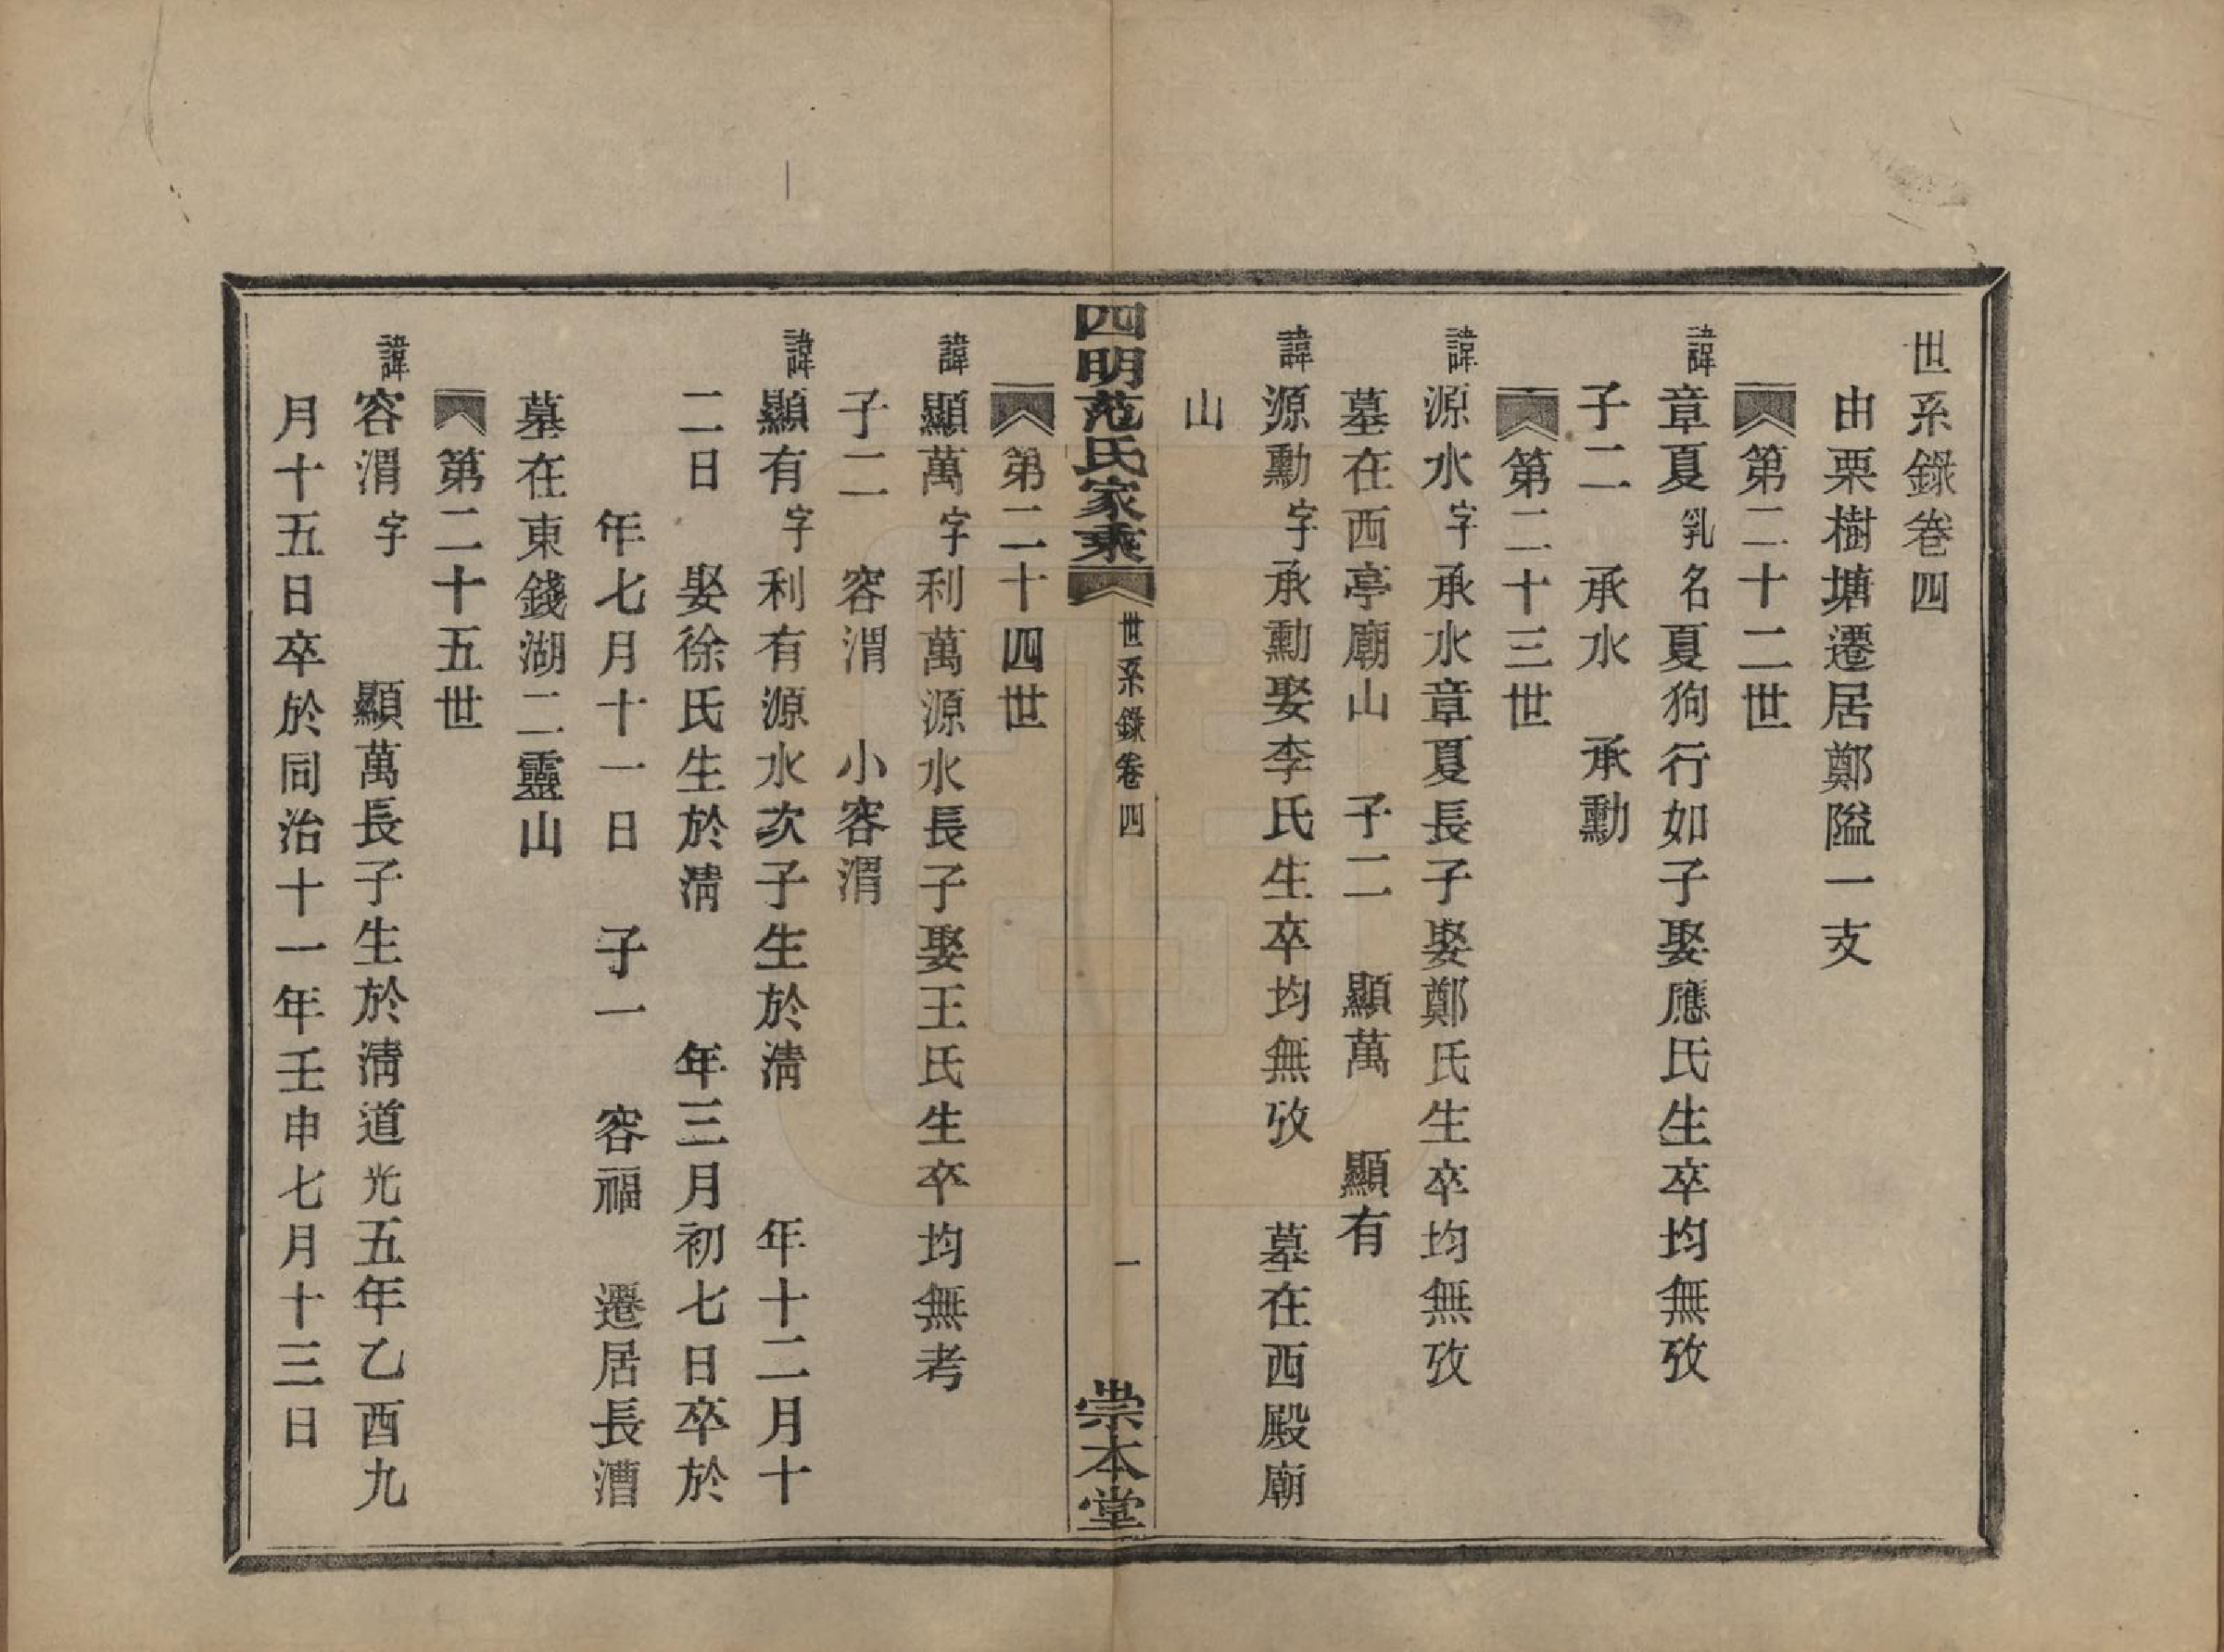 世系錄卷四
由栗樹塘遷居鄭隘一支
第二十二世
諱章夏乳名夏狗行如子娶應氏生卒均無攷
子二　承水　承勳
第二十三世
諱源水字承水章夏長子娶鄭氏生卒均無攷
墓在西亭廟山　子二　顯萬　顯有
諱源勳字承勳娶李氏生卒均無攷　墓在西殿廟
山
四明范氏家乘　世系錄卷四　一　崇本堂
第二十四世
諱顯萬字利萬源水長子娶王氏生卒均無考
子二　容渭　小容渭
諱顯有字利有源水次子生於清　年十二月十
二日　娶徐氏生於清　年三月初七日卒於
年七月十一日　子一　容福　遷居長漕
墓在東錢湖二靈山
第二十五世
諱容渭字　顯萬長子生於清道光五年乙酉九
月十五日卒於同治十一年壬申七月十三日